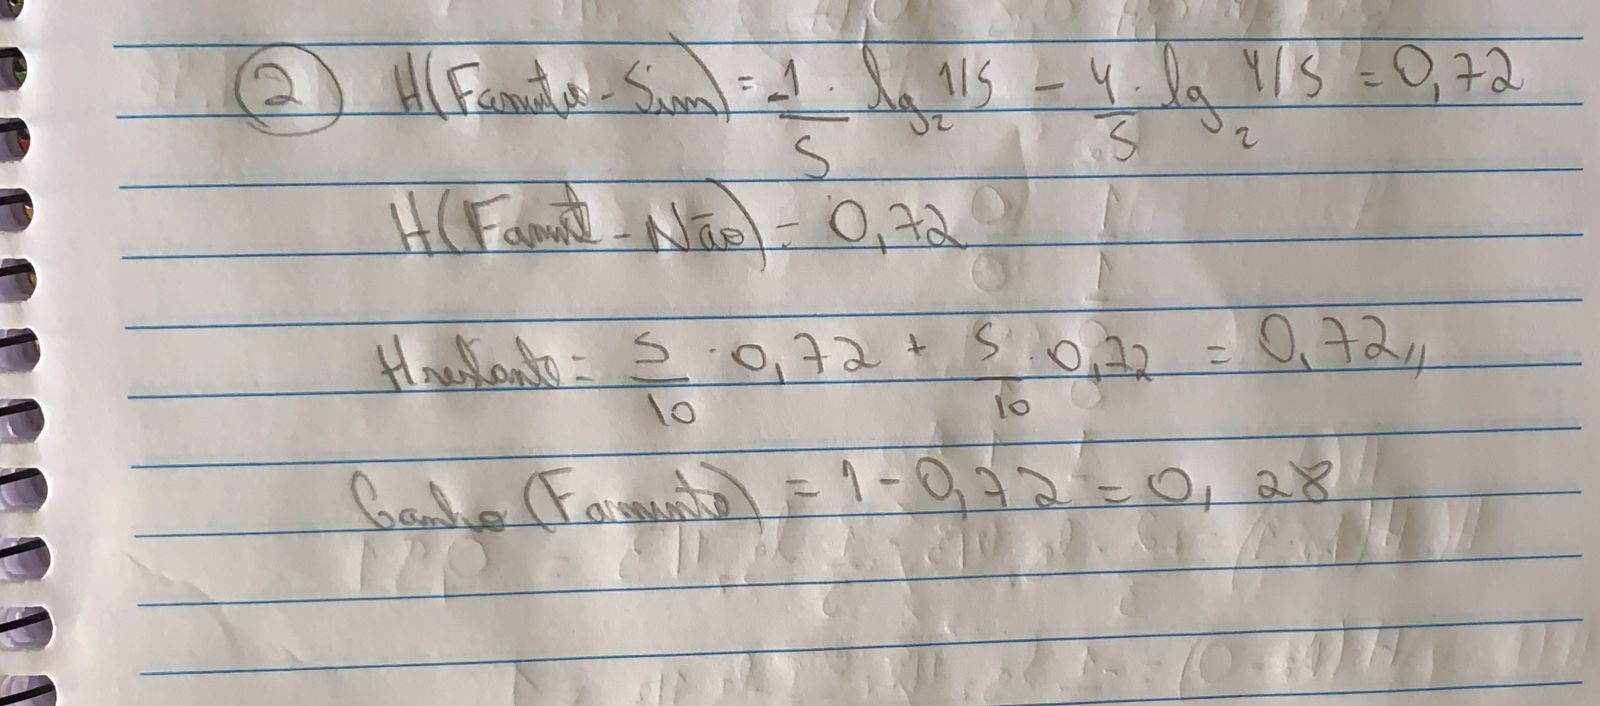 ② H(Faminto - Sim) = -1/5 . lg₂ 1/5 - 4/5 . lg₂ 4/5 = 0,72
H(Famint - Não) = 0,72
Hrestante = 5/10 . 0,72 + 5/10 . 0,72 = 0,72,,
Ganho (Faminto) = 1 - 0,72 = 0, 28